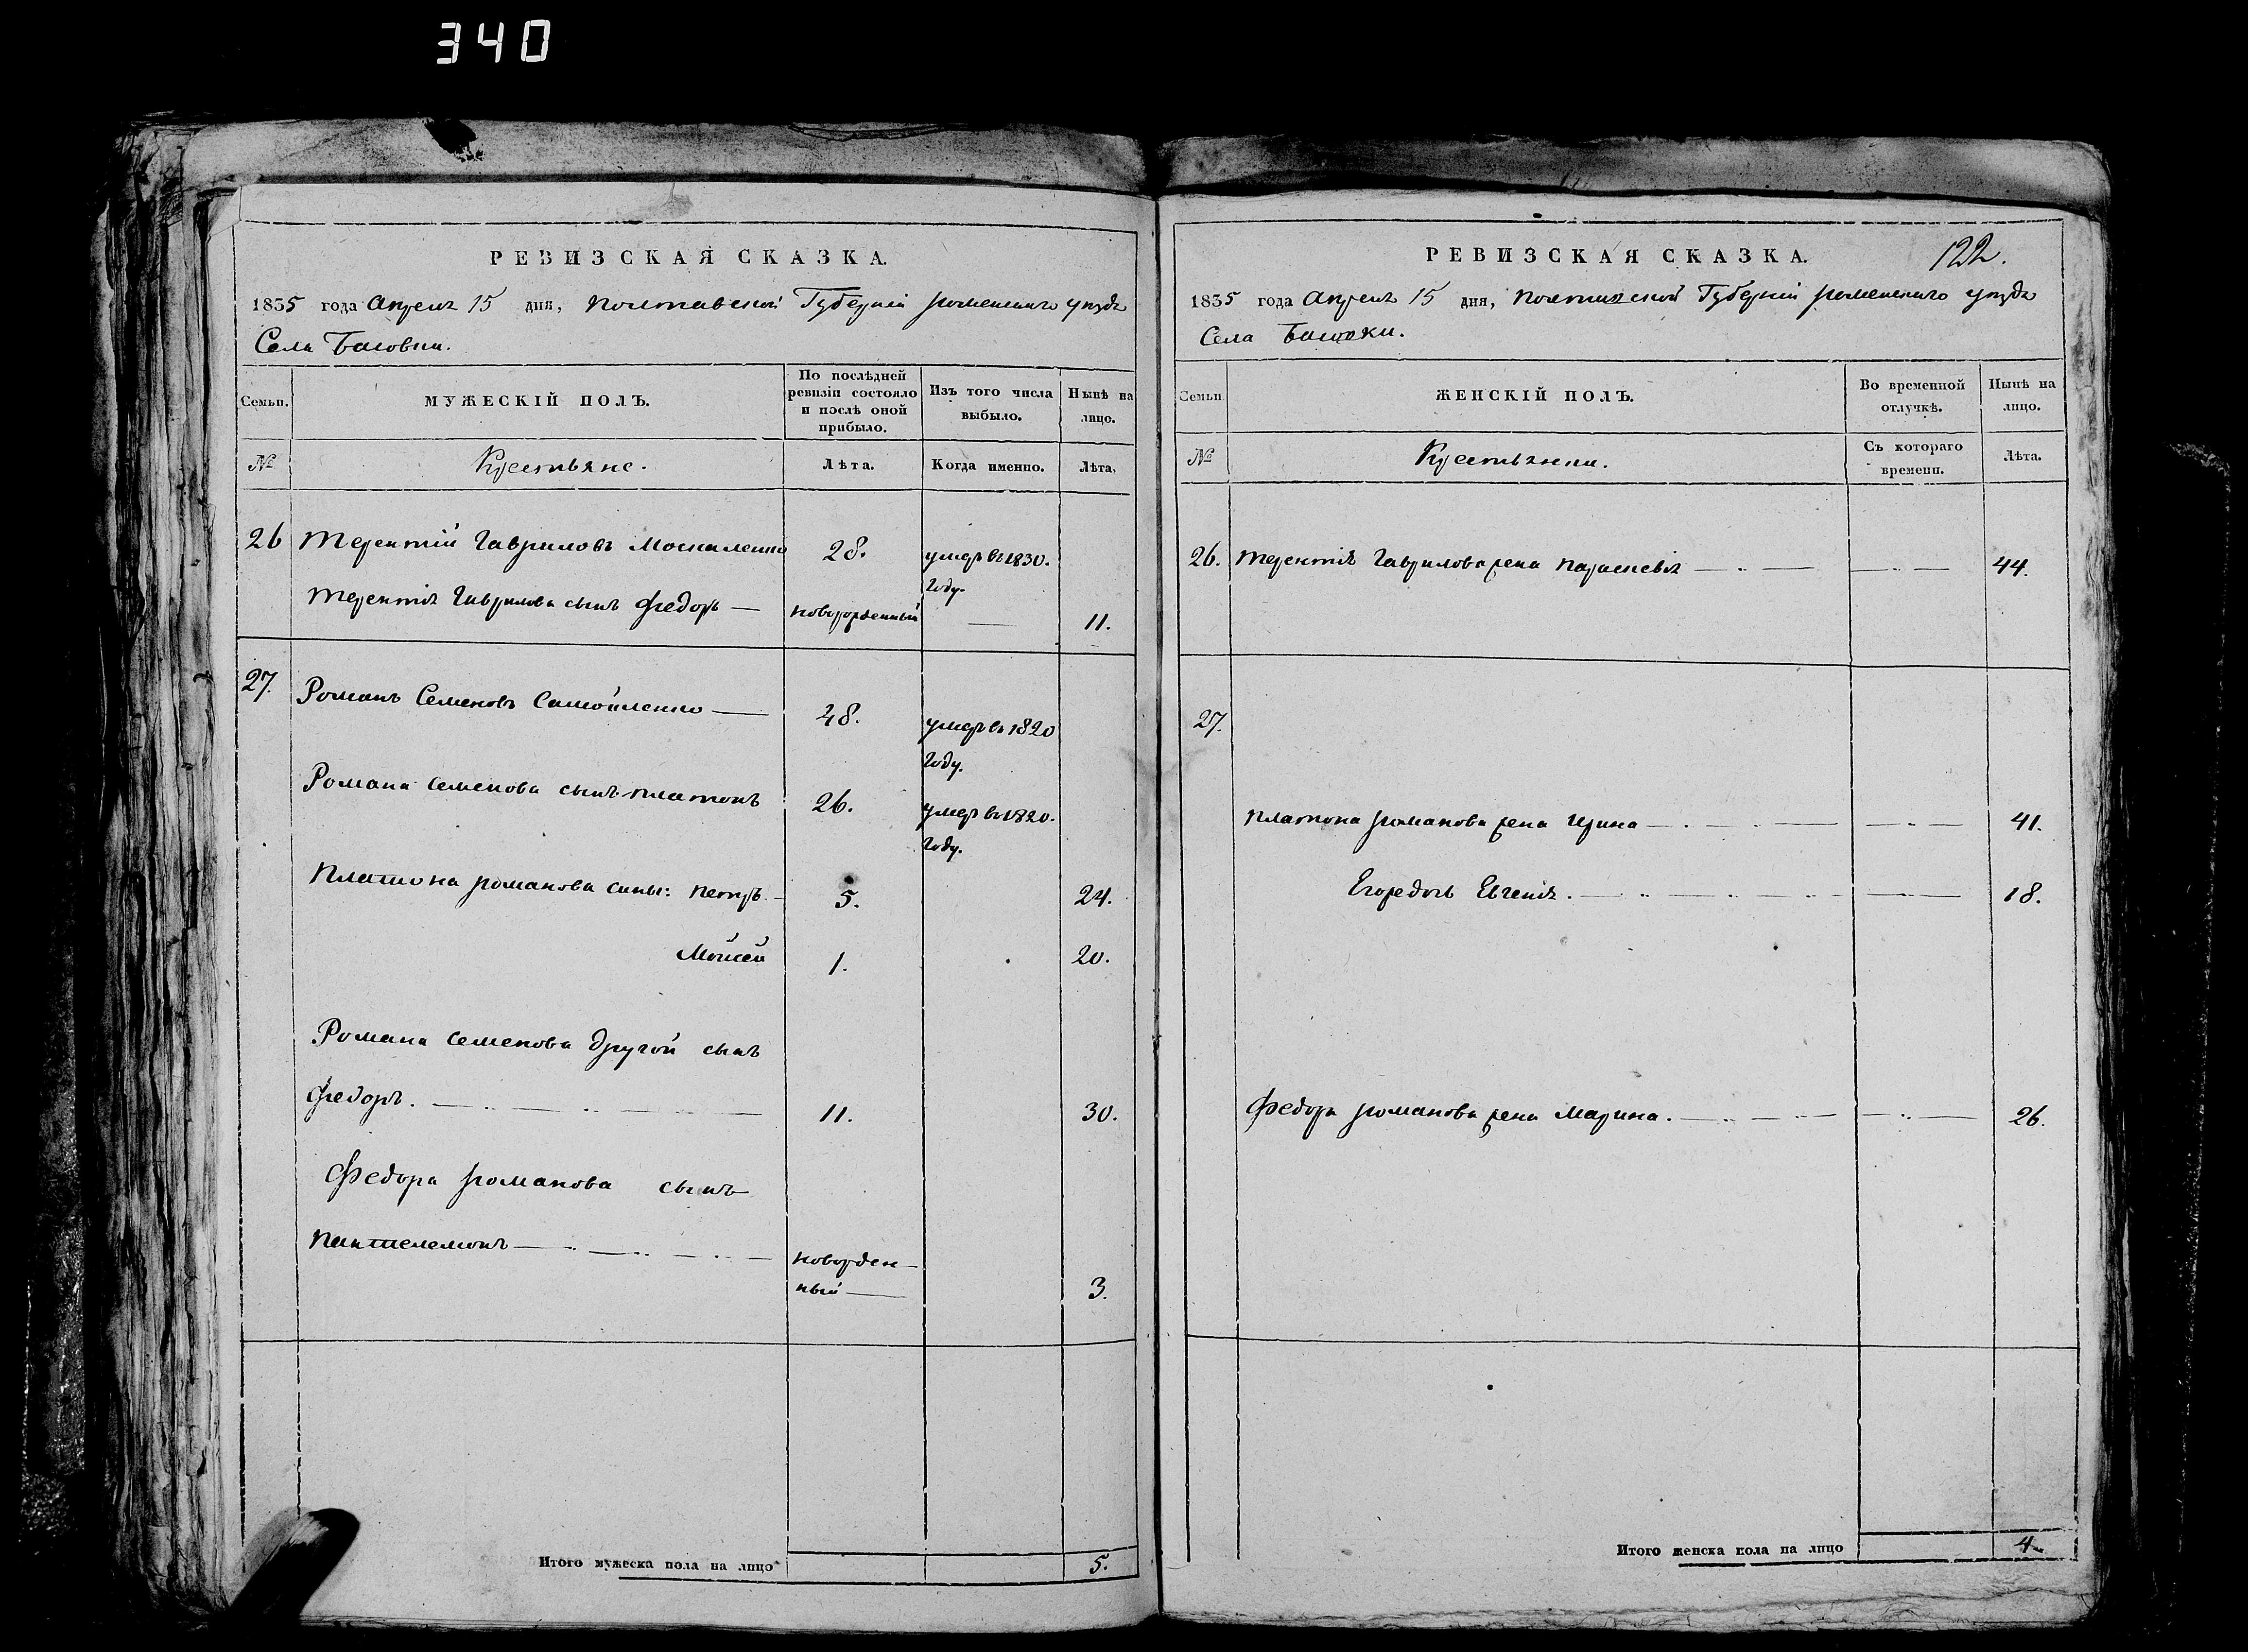 340
РЕВИЗСКАЯ СКАЗКА.
1835 года Апреля 15 дня, Полтавской Губерніи роменскаго уезда
Села Басовки.
Семьи.
МУЖЕСКІЙ ПОЛЪ.
По послѣдней ревизіи состояло и послѣ оной прибыло.
Изъ того числа выбыло.
Нынѣ на лицо.
№
Крестьяне.
Лѣта.
Когда именно.
Лѣта.
26 Терентій Гавриловъ Москаленко 28. умеръ въ 1830. году.
Терентія Гаврилова сынъ Федоръ — новорожденный — 11.
27. Романъ Семеновъ Самойленко — 48. умеръ въ 1820 году.
Романа Семенова сынъ Платонъ 26. умеръ въ 1820. году.
Платона романова сины: Петръ 5. 24.
Мойсей 1. 20.
Романа Семенова другой сынъ
Федоръ. 11. 30.
Федора романова сынъ
Пантелемонъ — новорден-
ный — 3.
Итого мужеска пола на лицо 5.
РЕВИЗСКАЯ СКАЗКА.
122.
1835 года Апреля 15 дня, Полтавской Губерніи роменскаго уезда
Села Басовки.
Семьи
ЖЕНСКІЙ ПОЛЪ.
Во временной отлучкѣ.
Нынѣ на лицо.
№
Крестьянки.
Съ котораго времени.
Лѣта.
26. Терентія Гаврилова жена Параскевія 44.
27.
Платона романова жена Ирина 41.
Его ж дочь Евгенія. 18.
Федора романова жена Марина. 26.
Итого женска пола на лицо 4.